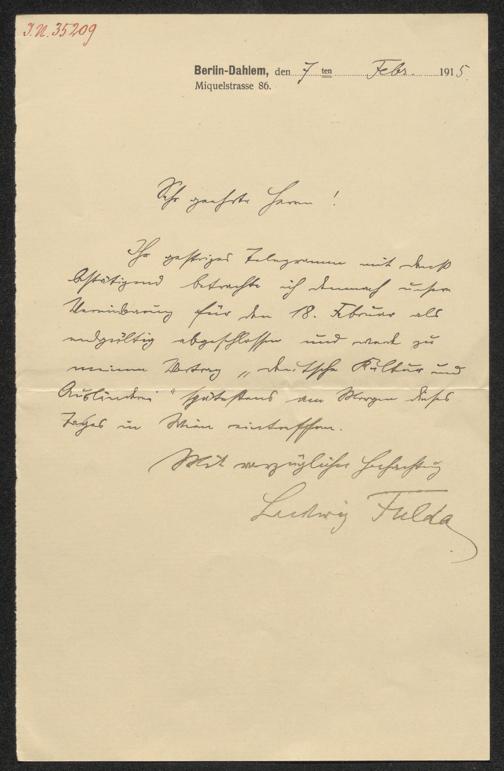 I.N. 35209
Berlin-Dahlem, den 7 ten Febr. 1915.
Miquelstrasse 86.
Sehr geehrte Herren!
Ihr gestriges Telegramm mit Dank
bestätigend betrachte ich demnach unsere
Vereinbarung für den 18. Februar als
endgültig abgeschlossen und werde zu
meinem Vortrag „Deutsche Kultur und
Ausländerei“ spätestens am Morgen dieses
Tages in Wien eintreffen.
Mit vorzüglicher Hochachtung
Ludwig Fulda